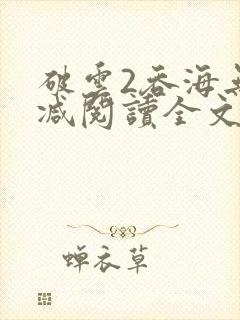 破雲2吞海無
減閱讀全文
蝉衣草